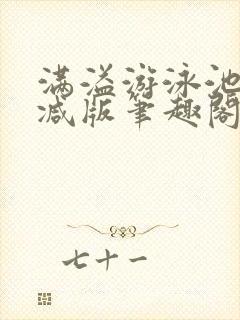 满溢游泳池
减版笔趣阁
七十一